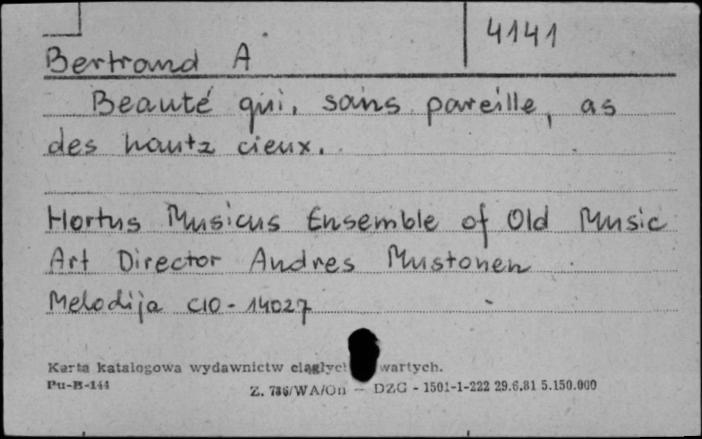 4141
Bertrand A
Beauté qui, sans pareille, as
des hautz cieux.
Hortus Musicus Ensemble of Old Music
Art Director Andres Mustonen
Melodija C10-14027
Karta katalogowa wydawnictw ciągłych wartych.
Pu-B-144
Z. 786/WA/On — DZG - 1501-1-222 29.6.81 5.150.000